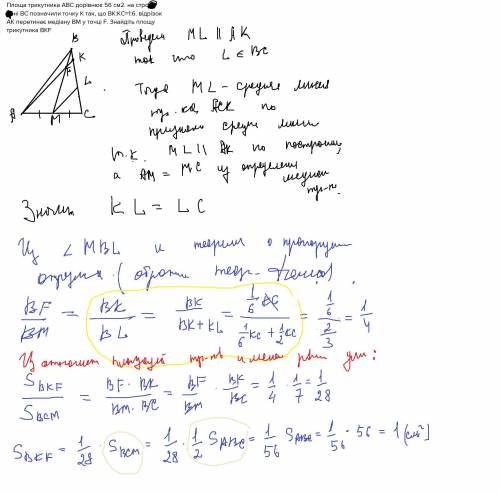 Площа трикутника ABC дорівнює 56 см2. на сто
ні BC позначили точку K так, що BK:KC=1:6. відрізок
AK перетинає медіану BM у точці F. Знайдіть площу
трикутника BKF
Проведем ML || AK
так что L ∈ BC
B
K
F
L
A
M
C
Тогда ML - средняя линия
тр-ка ACK по
признаку средн линии
т.к. ML || AK по построению,
а AM = MC из определения
медианы
тр-к.
Значит KL = LC
Из ∠ MBL и теорема о пропорцион
отрезках (обратн теор-Фалеса).
BF/BM = BK/BL = BK/(BK+KL) = (1/6 KC)/(1/6 KC + 1/2 KC) = (1/6)/(2/3) = 1/4
Из отношен площадей тр-ков имеющ равн угл:
S BKF/S BCM = (BF · BK)/(BM · BC) = BF/BM · BK/BC = 1/4 · 1/7 = 1/28
S BKF = 1/28 · S BCM = 1/28 · 1/2 S ABC = 1/56 S ABC = 1/56 · 56 = 1 (см²)